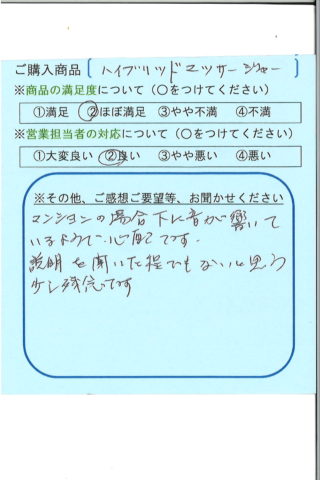 ご購入商品 ハイブリッドマッサージャー
※商品の満足度について(○をつけてください)
①満足 ②ほぼ満足 ③やや不満 ④不満
※営業担当者の対応について(○をつけてください)
①大変良い ②良い ③やや悪い ④悪い
※その他、ご感想ご要望等、お聞かせください
マンションの場合下に音が響いて
いるようで心配です.
説明を聞いた程でもないと思う
少し残念です